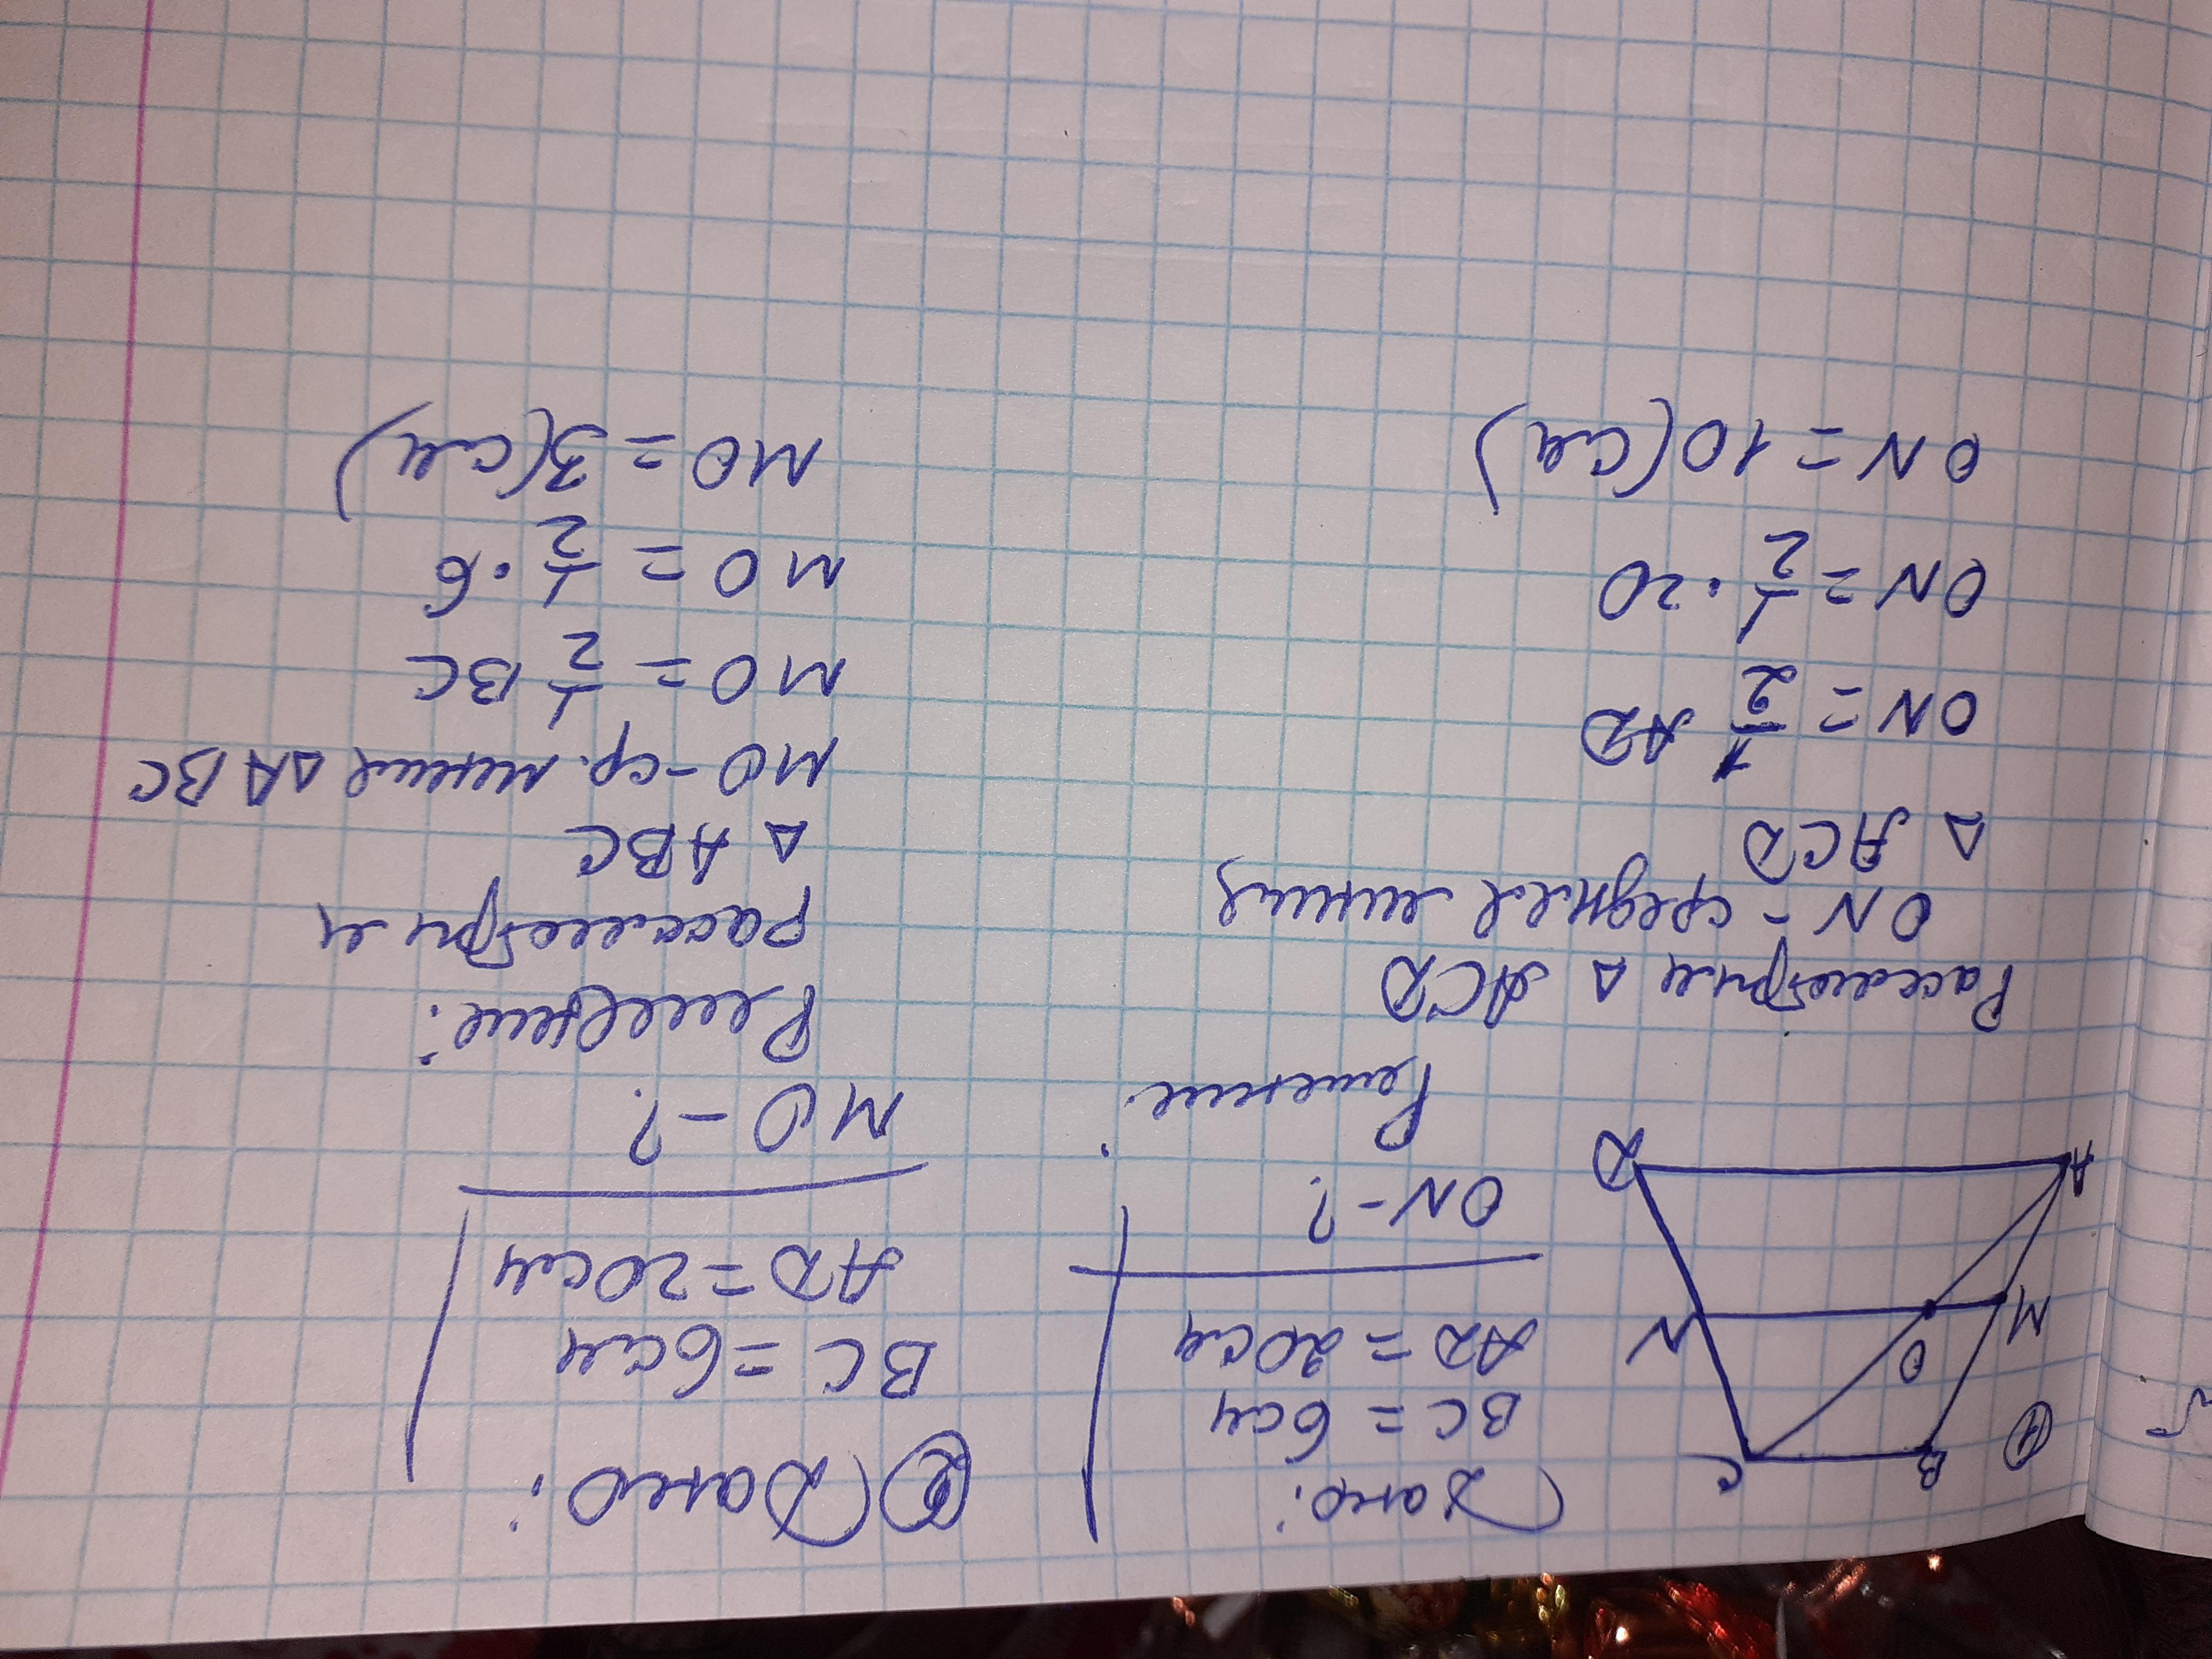 ①
B
C
M
O
N
A
D
Дано:
BC = 6см
AD = 20см
ON - ?
Решение:
Рассмотрим △ ACD
ON - средняя линия
△ ACD
ON = 1/2 AD
ON = 1/2 · 20
ON = 10 (см)
② Дано:
BC = 6см
AD = 20см
MO - ?
Решение:
Рассмотрим
△ ABC
MO - ср. линия △ABC
MO = 1/2 BC
MO = 1/2 · 6
MO = 3(см)